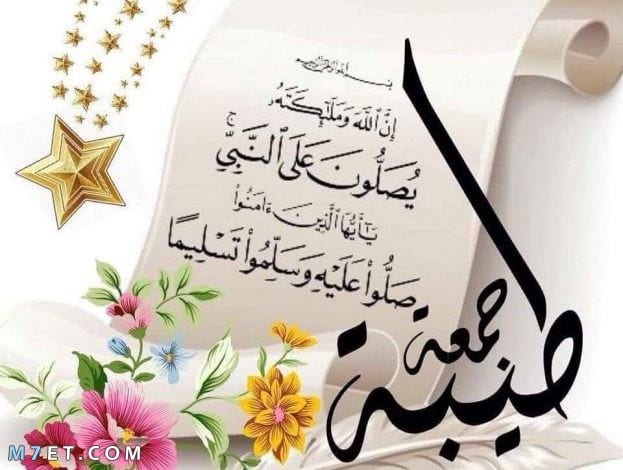 بسم الله الرحمن الرحيم
إِنَّ ٱللَّهَ وَمَلَٰٓئِكَتَهُۥ
يُصَلُّونَ عَلَى ٱلنَّبِيِّ ۚ
يَٰٓأَيُّهَا ٱلَّذِينَ ءَامَنُوا۟
صَلُّوا۟ عَلَيْهِ وَسَلِّمُوا۟ تَسْلِيمًا
جمعة
طيبة
M7ET.COM